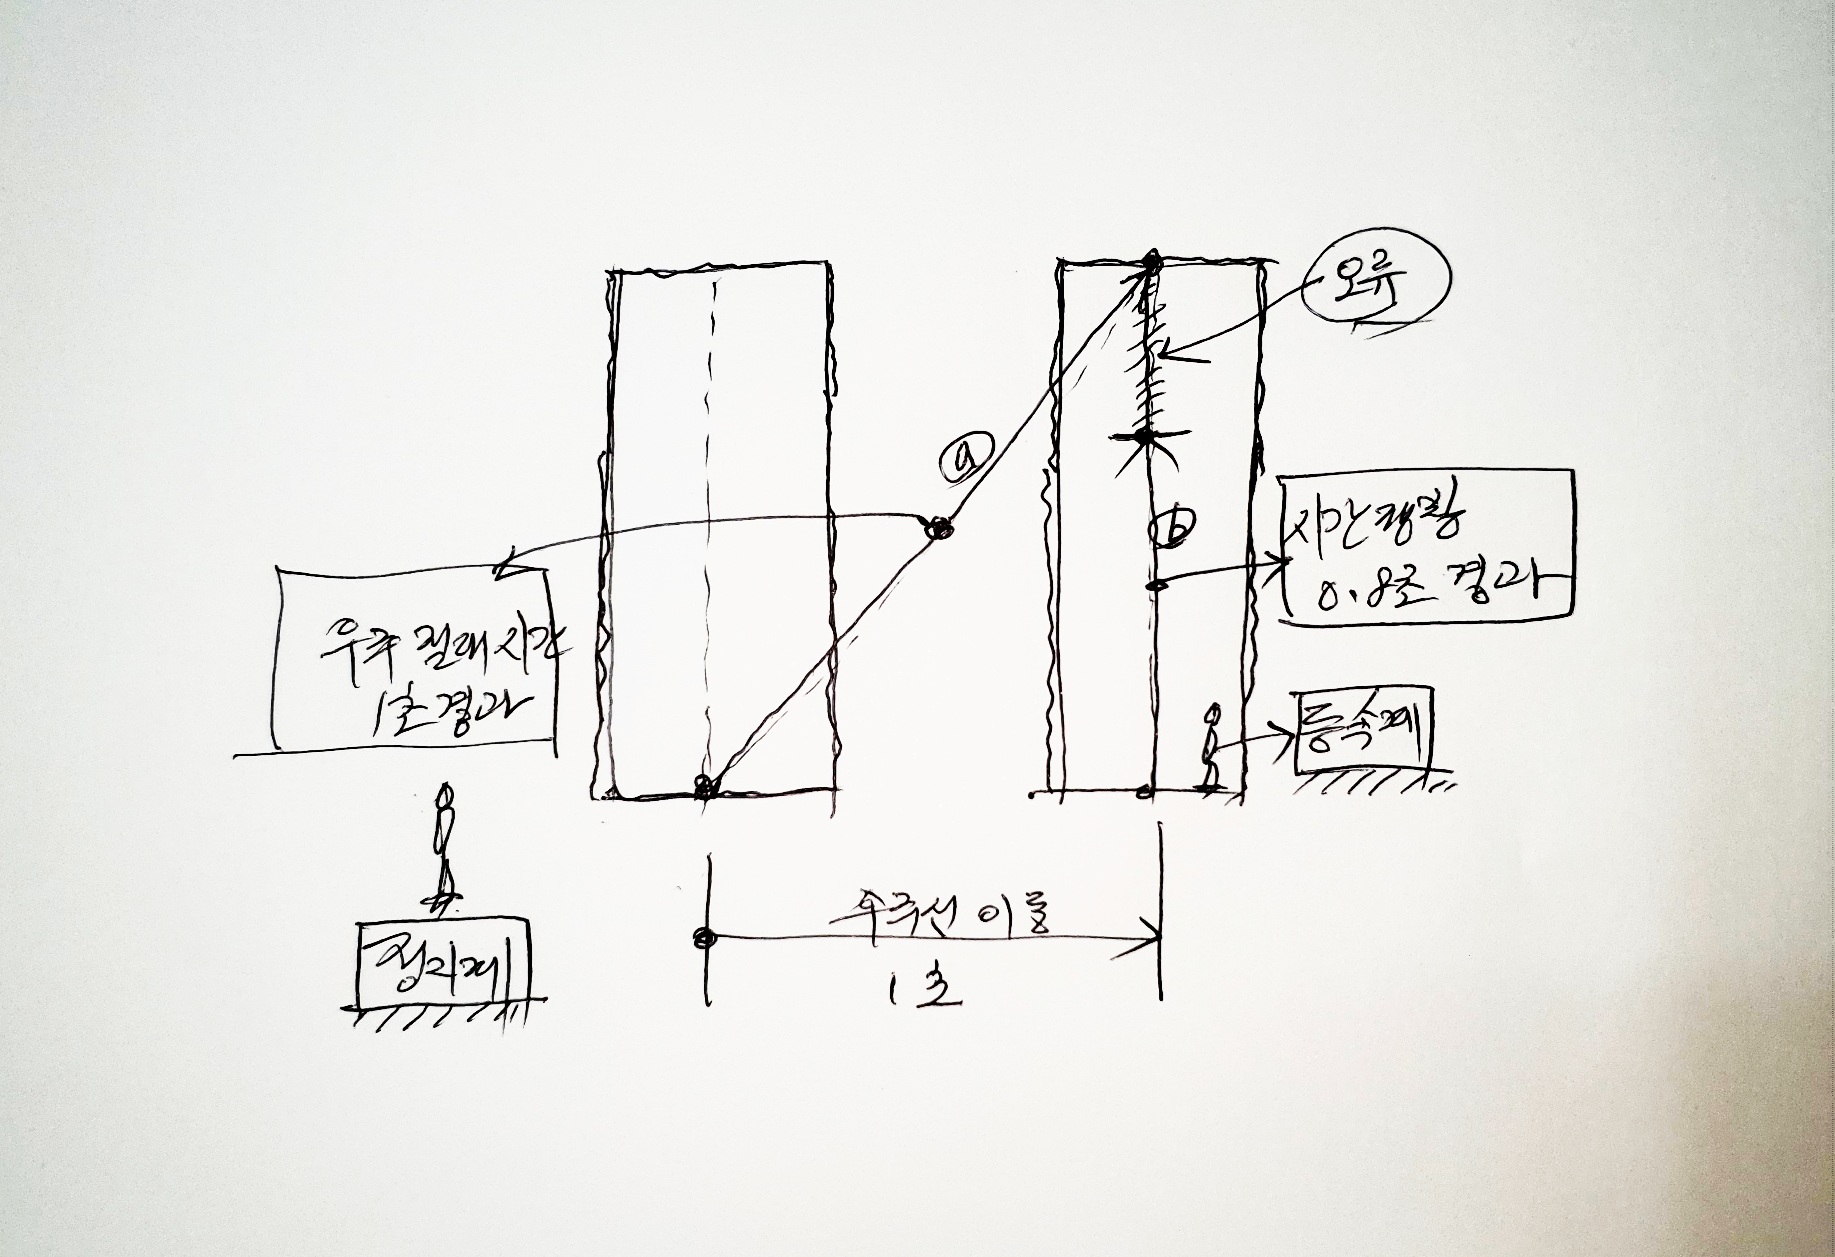 오류
ⓐ
ⓑ
시간팽창
0.8초 경과
우주 절대시간
1초 경과
등속계
정지계
우주선 이동
1초